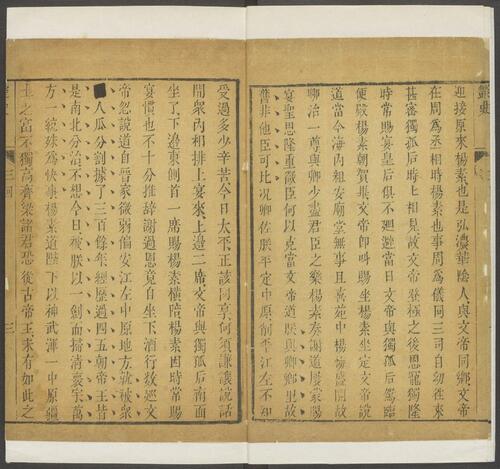 豔史
迎接原來楊素也是弘濃華陰人與文帝同鄉文帝
在周為丞相時楊素也事周為儀同三司自幼往來
甚密獨孤后時上相見故文帝登極之後恩寵獨隆
時常賜宴皇后俱不迴避當日文帝與獨孤后駕臨
便殿楊素朝賀畢文帝即叫賜坐楊素坐定文帝說
道當今海內粗安廟堂無事且喜苑中楊梅盛開故
卿治一尊與卿少盡君臣之樂楊素奏謝道屢蒙賜
宴聖思隆重微臣何以克當文帝道朕與卿卿里故
舊非他臣可比况卿佐朕平定中原削平江左不知
受過多少辛苦今日太平正該同享何須謙讓說話
間衆內相排上宴來上邊二席文帝與獨孤后南面
坐了下邊東側首一席賜楊素橫陪楊素因時常賜
宴慣也不十分推辞謝過恩竟自坐下酒行數巡文
帝忽說道自晋家微弱偏安江左中原地方就被衆
人瓜分割據了三百餘年經歷過四五朝帝王昔
是南北分治不想今日被朕以一劍而掃清寰宇萬
方一統殊為快事楊素道陛下以神武渾一中原疆
土之富不獨高齊梁諸君恐後古帝王未有如此之
三回
三